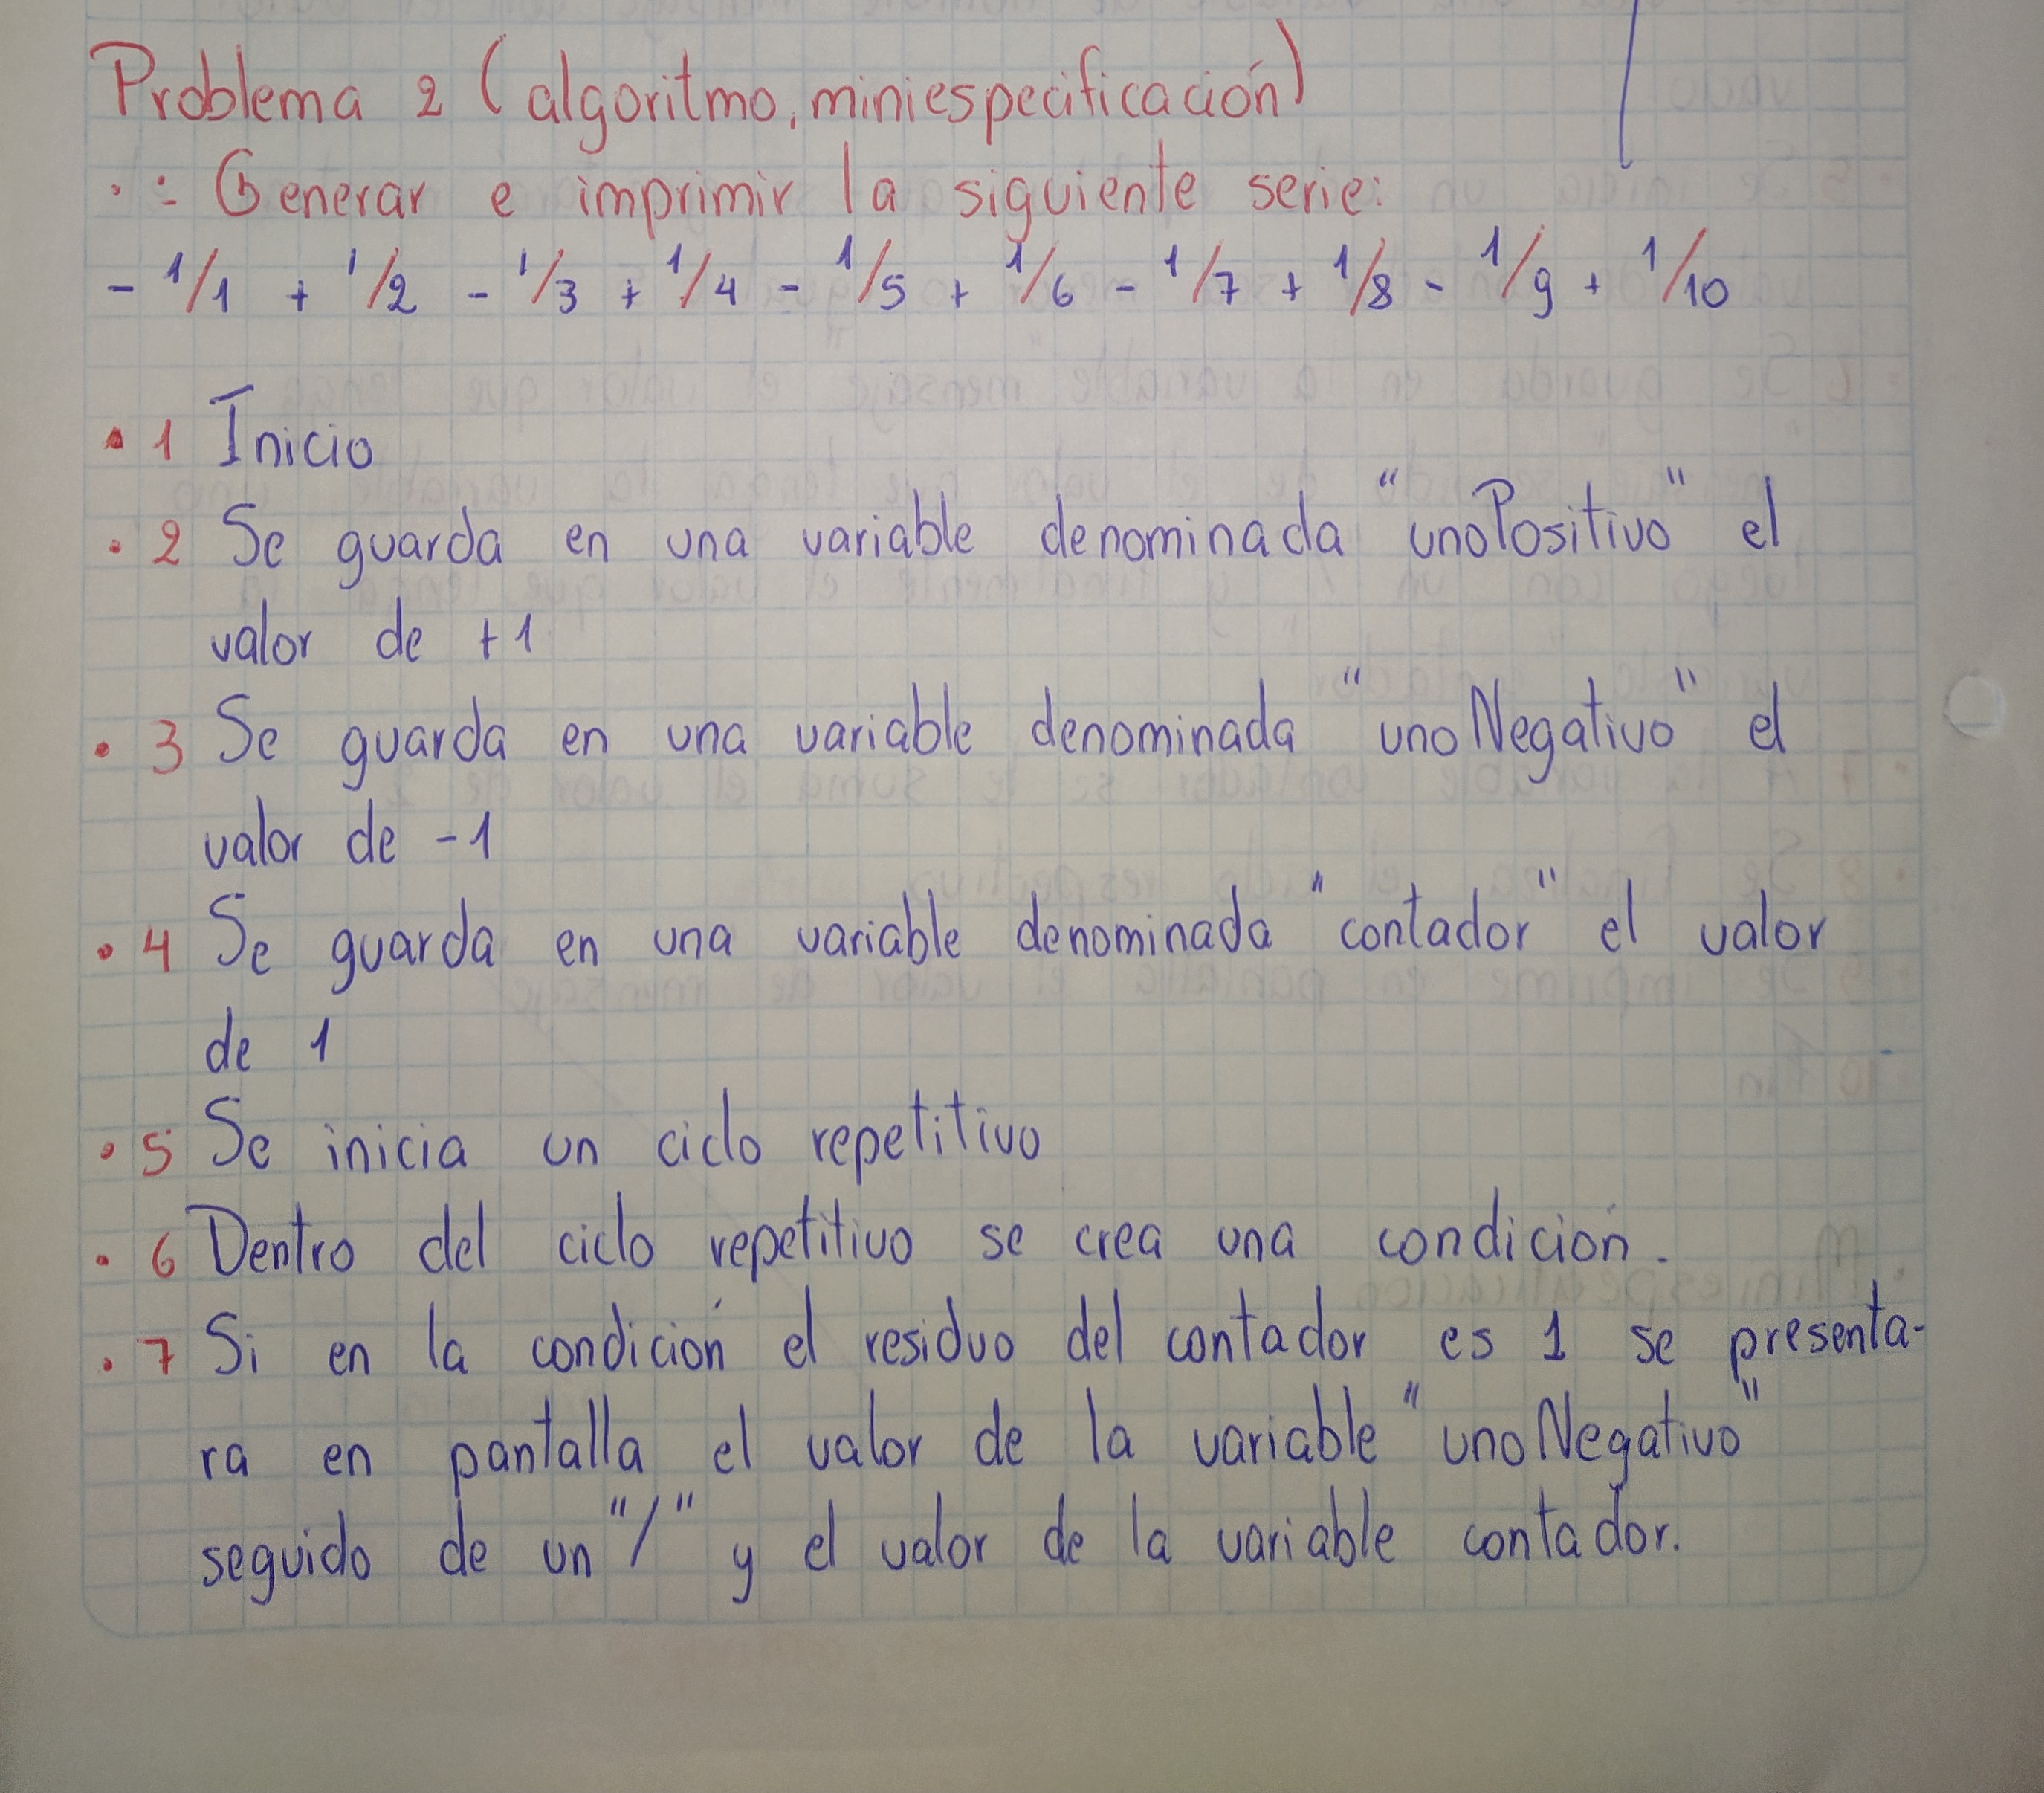 Problema 2 (algoritmo, miniespecificación)
.: Generar e imprimir la siguiente serie:
- 1/1 + 1/2 - 1/3 + 1/4 - 1/5 + 1/6 - 1/7 + 1/8 - 1/9 + 1/10
• 1 Inicio
• 2 Se guarda en una variable denominada "unoPositivo" el
valor de +1
• 3 Se guarda en una variable denominada "unoNegativo" el
valor de -1
• 4 Se guarda en una variable denominada "contador" el valor
de 1
• 5 Se inicia un ciclo repetitivo
• 6 Dentro del ciclo repetitivo se crea una condición.
• 7 Si en la condición el residuo del contador es 1 se presenta-
ra en pantalla el valor de la variable "unoNegativo"
seguido de un "/" y el valor de la variable contador.